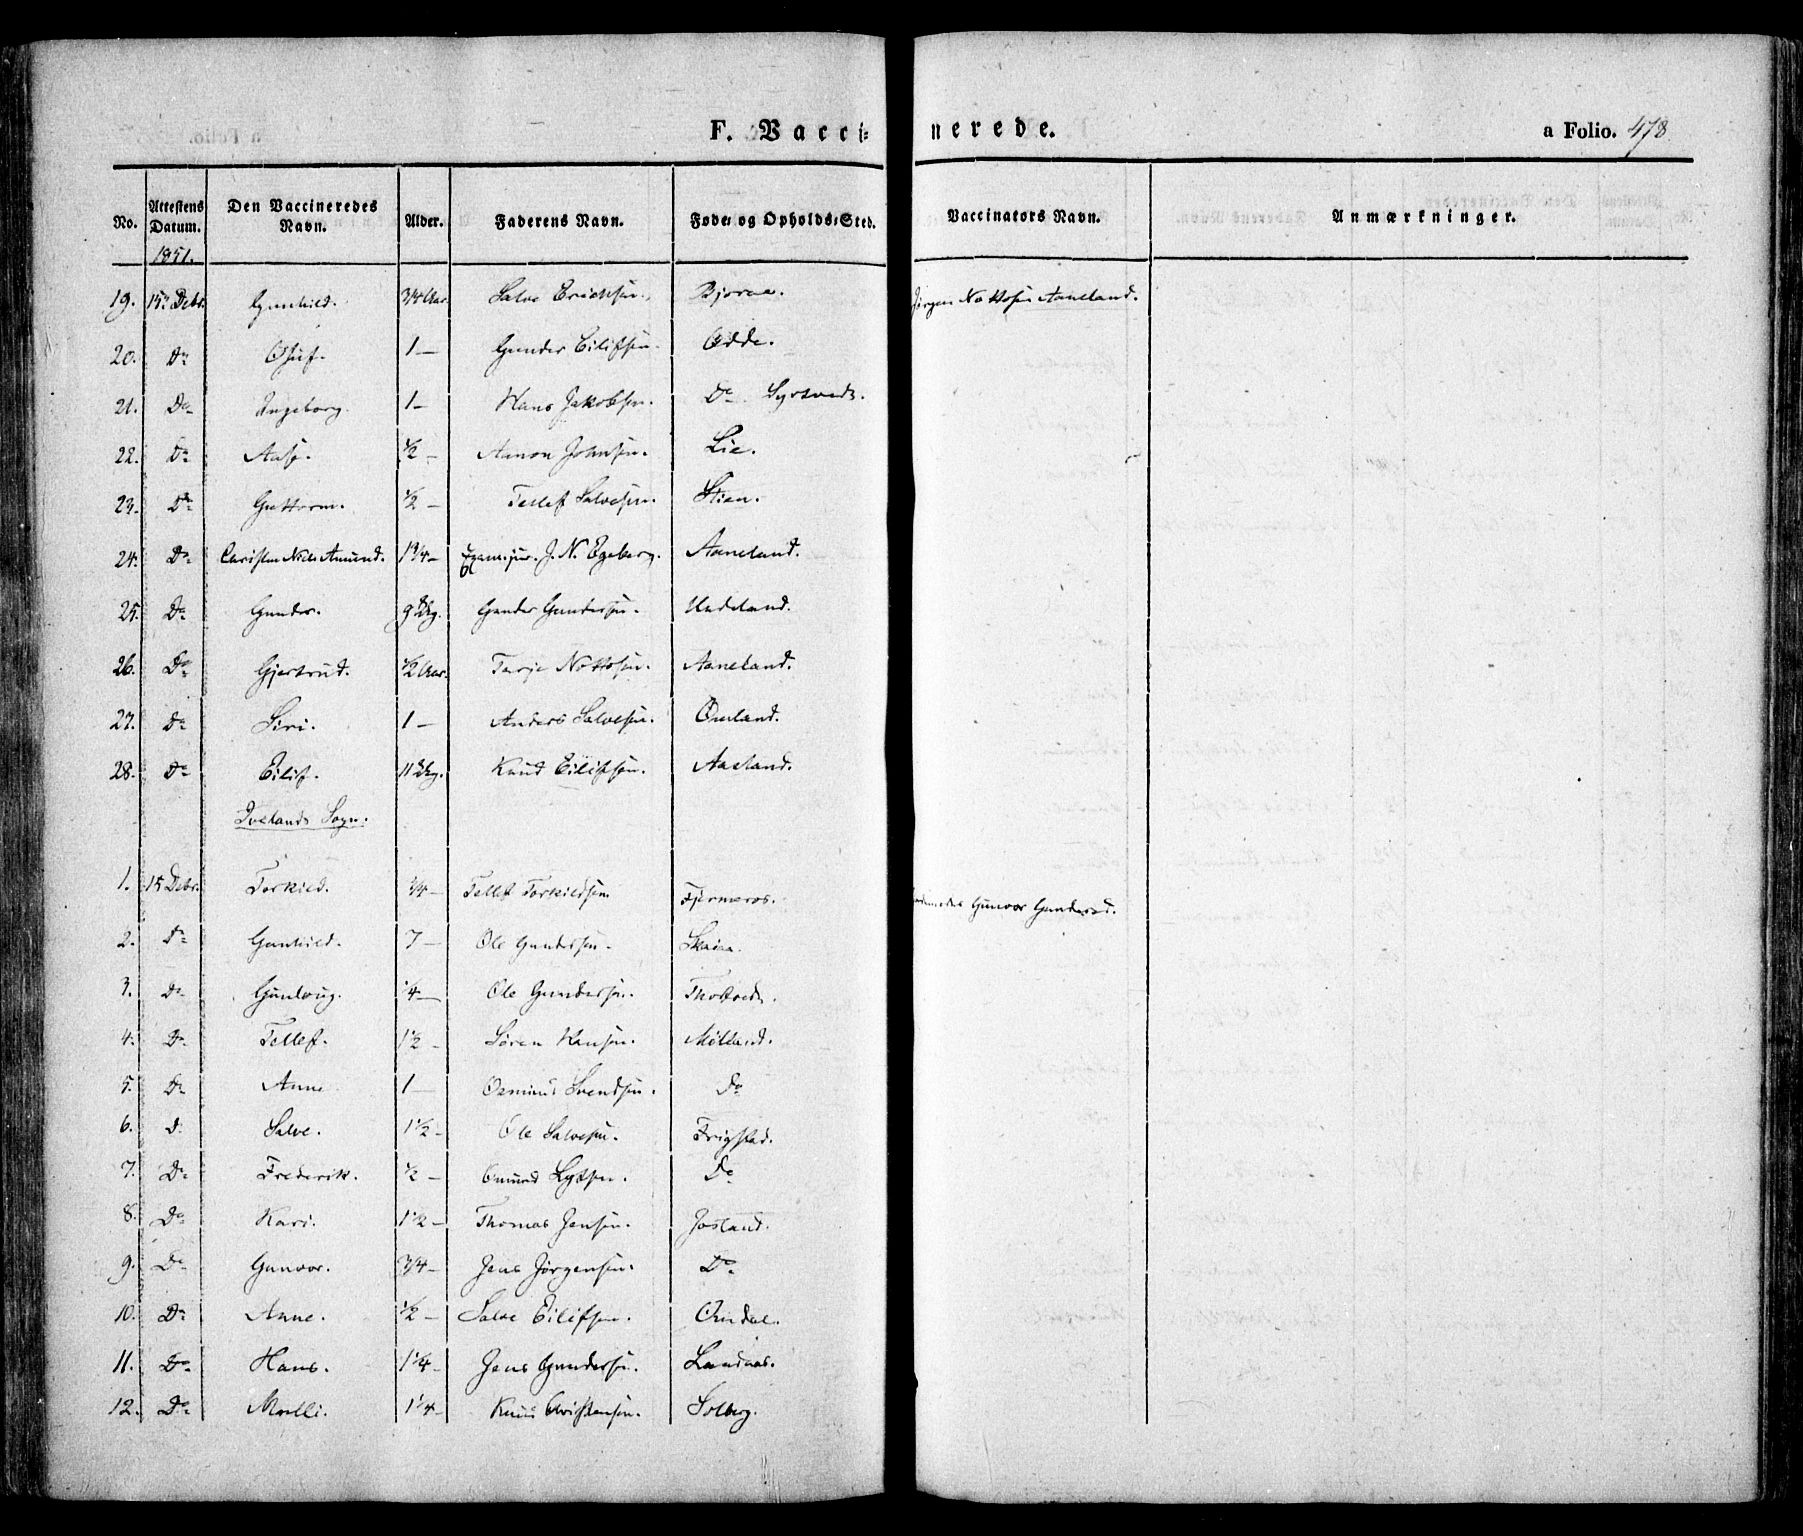 F. Vaccinerede.
a Folio. 478
No. Attestens Datum. Den Vaccineredes Navn. Alder. Faderens Navn. Føde- og Opholds-Sted. Vaccinators Navn. Anmærkninger.
1851.
19. 15de Debr. Gunhild. 3/4 Aar. Salve Erichsen. Bjoraa. Jørgen Nottosen Aaneland.
20. Do Osuf. 1 — Gunder Eilifsen. Odde.
21. Do Ingeborg. 1 — Hans Jakobsen. Do.
22. Do Aase. 1/2 — Aanon Johnsen. Lie.
23. Do Guttorm. 1/2 — Tellef Salvesen. Stien.
24. Do Christen Niels Amund. 1 3/4 — Exam. jur. J. N. Egeberg. Aaneland.
25. Do Gunder. 9 Gunder Gundersen. Uudeland.
26. Do Gjertrud. 1/2 Aar. Terje Nottosen. Aaneland.
27. Do Siri. 1 — Anders Salvesen. Omland.
28. Do Eilif. 11 Knud Eilifsen. Aaneland.
Ivelands Sogn.
1. 15 Debr. Torkild. 3/4 — Tellef Torkildsen. Fjermeros. Gunvor Gundersd.
2. Do Gunhild. 7 — Ole Gundersen. Skaiaa.
3. Do Gunlaug. 1/4 — Ole Gundersen. Thortvedt.
4. Do Tellef. 1 1/2 — Søren Hansen. Mølland.
5. Do Anne 1 — Osmund Svendsen. Do
6. D Salve. 1 1/2 — Ole Salvesen. Frigstad.
7. Do Frederik. 1/2 — Omund Do
8. Do Kari. 1 1/2 — Thomas Jensen. Josland.
9. Do Gunvor. 3/4 — Jens Jørgensen. Do
10. Do Anne. 1/2 — Salve Eilifsen. Omdal.
11. Do Hans. 1 1/4 — Jens Gundersen. Landaas.
12. Do Malli. 1 1/4 — Knud Christensen. Solberg.